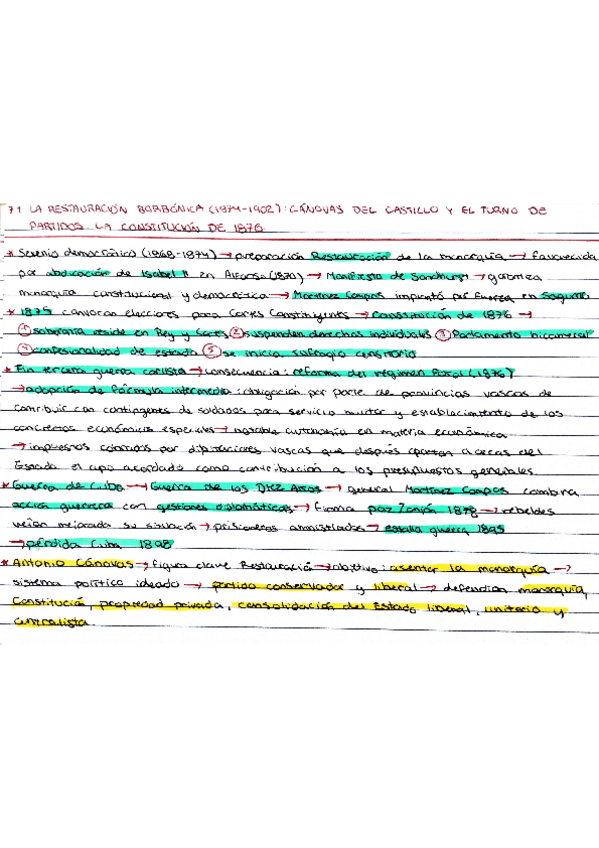 7.1 LA RESTAURACIÓN BORBÓNICA (1874-1902): CÁNOVAS DEL CASTILLO Y EL TURNO DE
PARTIDOS. LA CONSTITUCIÓN DE 1876
* Sexenio democrático (1868-1874) → preparación Restauración de la monarquía → favorecida
por abdicación de Isabel II en Alfonso (1870) → Manifiesto de Sandhurst → garantiza
monarquía constitucional y democrática → Martínez Campos impuntó por fuerza en Sagunto
* 1875 convocan elecciones para Cortes Constituyentes → Constitución de 1876 →
① soberanía reside en Rey y Cortes ② suspenden derechos individuales ③ Parlamento bicameral
④ confesionalidad de estado ⑤ se inicia sufragio censitario
* Fin tercera guerra carlista → consecuencia: reforma del régimen foral (1876)
→ adopción de fórmula intermedia: obligación por parte de provincias vascas de
contribuir con contingentes de soldados para servicio militar y establecimiento de los
conciertos económicos especiales → notable autonomía en materia económica
→ impuestos cobrados por diputaciones vascas que después aportan a arcas del
Estado el cupo acordado como contribución a los presupuestos generales.
* Guerra de Cuba → Guerra de los Diez Años → general Martínez Campos combina
acción guerrera con gestiones diplomáticas → firma paz Zanjón 1878 → rebeldes
veían mejorada su situación → prisioneros amnistiados → estalla guerra 1895
→ pérdida Cuba 1898
* Antonio Cánovas → figura clave Restauración → objetivo: asentar la monarquía →
sistema político ideado → partido conservador y liberal → defendían monarquía,
Constitución, propiedad privada, consolidación del Estado liberal, unitario y
centralista